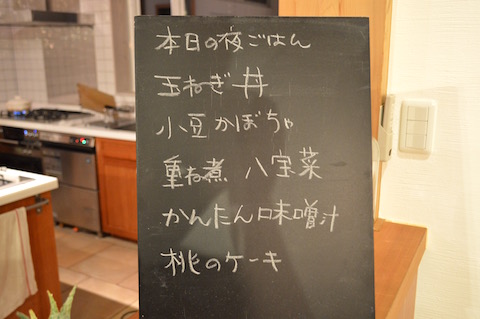 本日の夜ごはん
玉ねぎ丼
小豆かぼちゃ
重ね煮 八宝菜
かんたん味噌汁
桃のケーキ